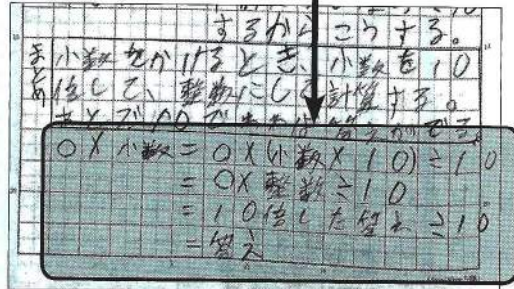 するからこうする。
まとめ
小数をかけるとき、小数を10
倍して、整数にして計算する。
あとで10でわれば答えがでる。
○×小数=○×(小数×10)÷10
=○×整数÷10
=10倍した答え÷10
=答え